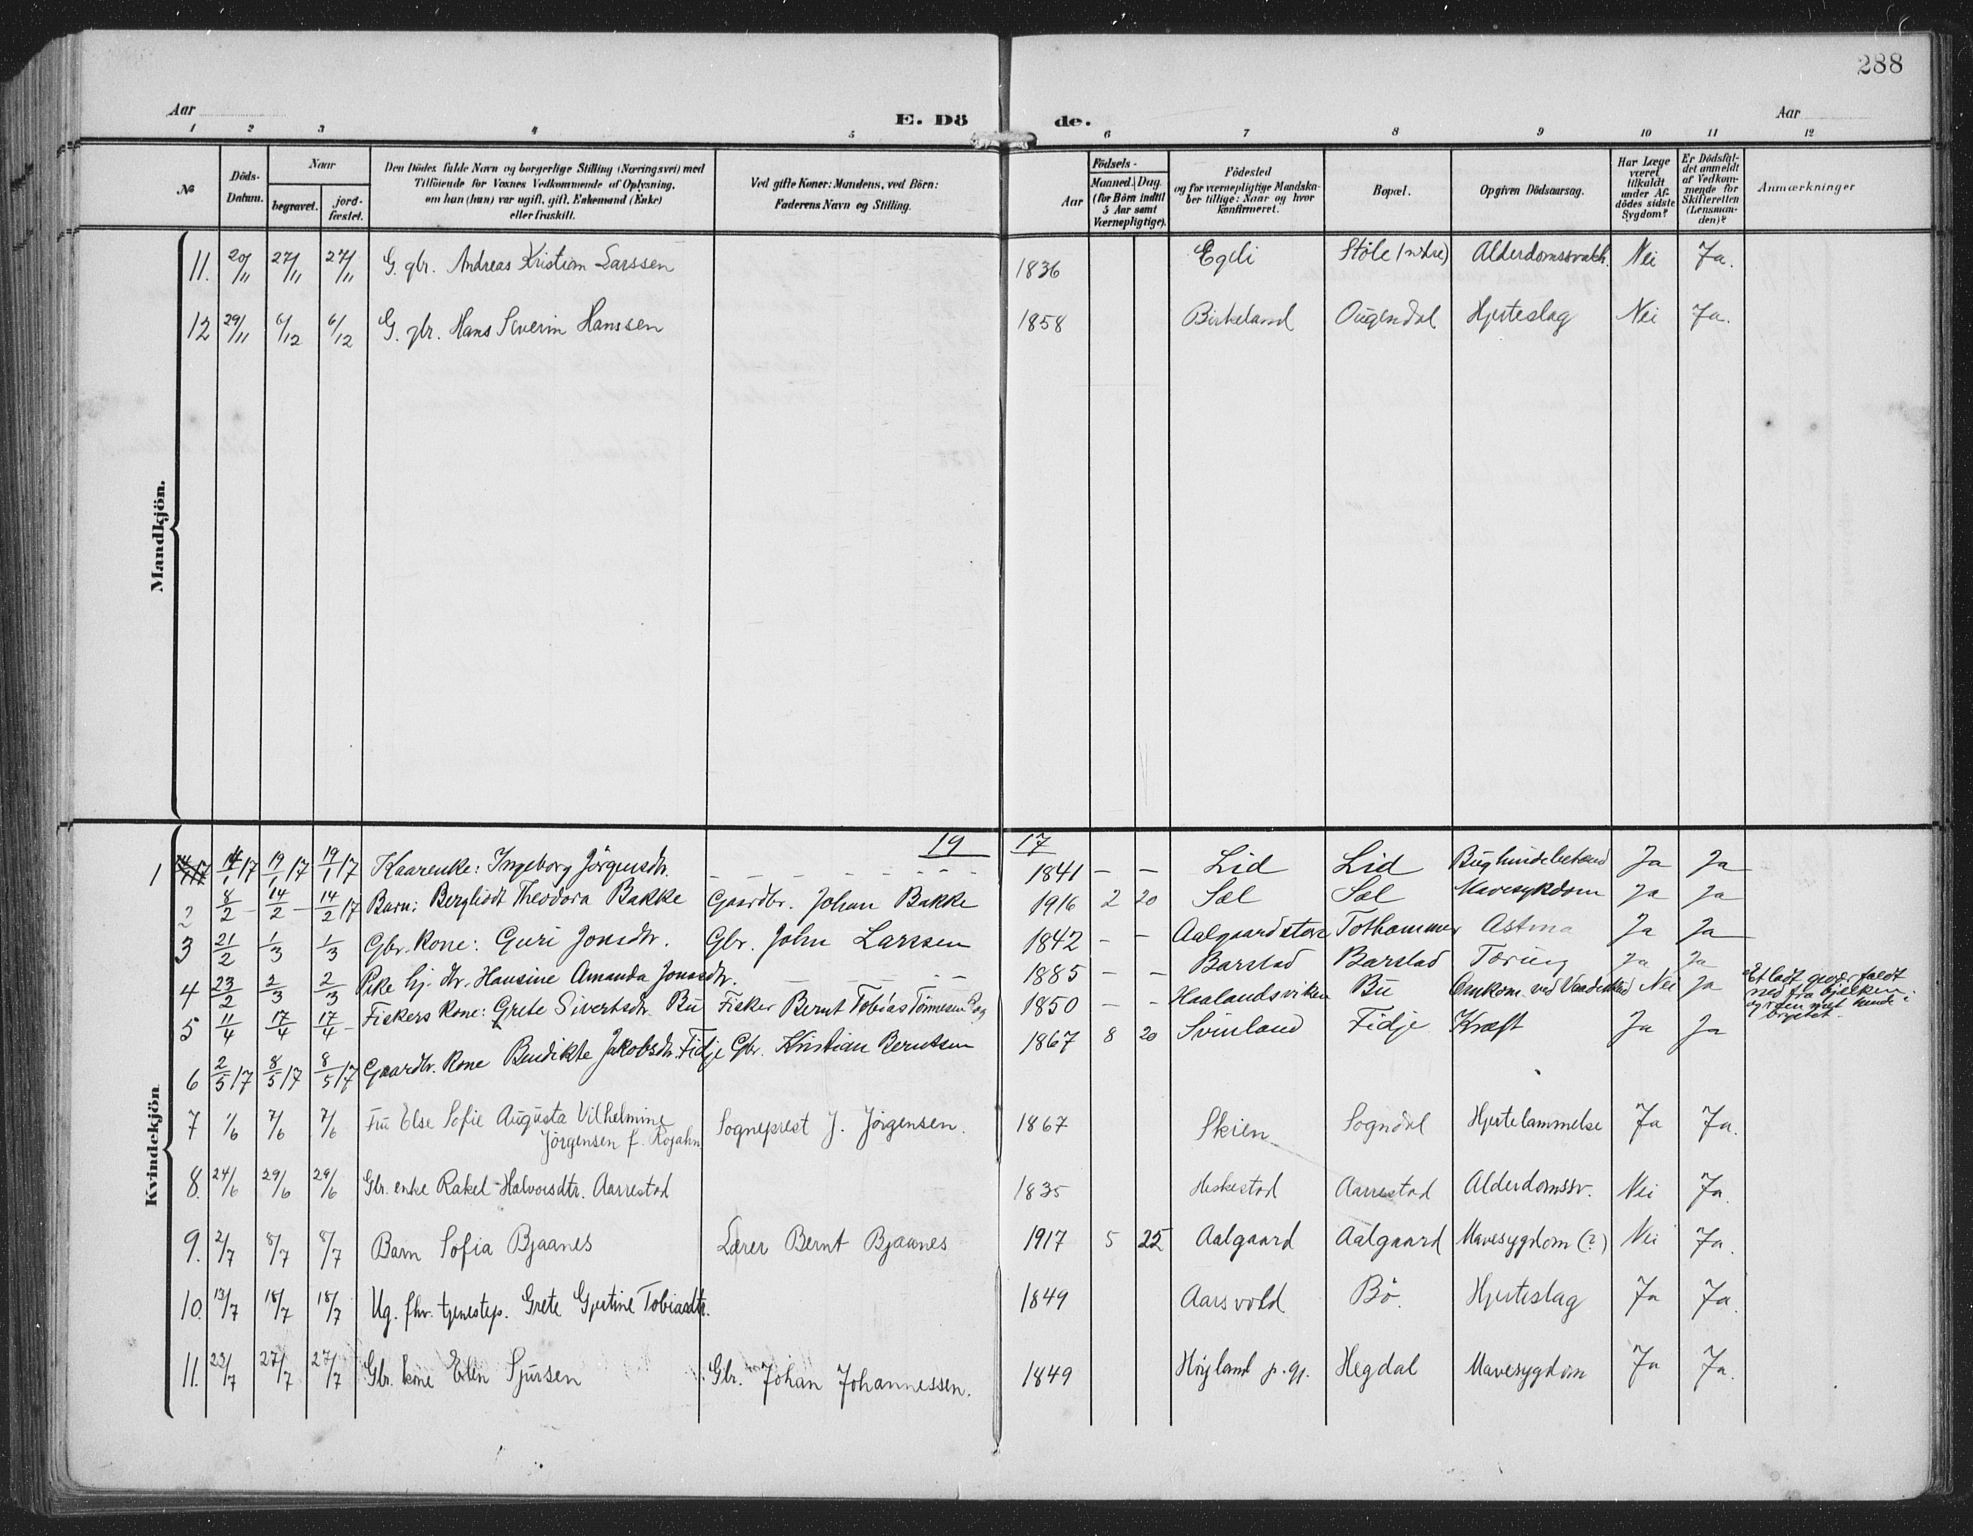 288
Aar
E. Dö
de.
Aar
1 2 3 4 5 6 7 8 9 10 11 12
No
Döds-
Datum.
Naar
begravet.
jord-
fæstet.
Den Dödes fulde Navn og borgerlige Stilling (Næringsvei) med
Tilföiende for Voxnes Vedkommende af Oplysning,
om han (hun) var ugift, gift, Enkemand (Enke)
eller fraskilt.
Ved gifte Koner: Mandens, ved Börn:
Faderens Navn og Stilling.
Aar
Födsels-
Maaned. Dag
(for Börn indtil
5 Aar samt
Værnepligtige).
Födested
og for værnepligtige Mandska-
ber tillige: Naar og hvor
konfirmeret.
Bopæl.
Opgiven Dödsaarsag.
Har Læge
været
tilkaldt
under Af-
dödes sidste
Sygdom?
Er Dödsfal-
det anmeldt
af Vedkom-
mende for
Skifteretten
(Lensman-
den)?
Anmærkninger
Mandkjön.
11. 20/11 27/11 27/11 G. gbr. Andreas Kristian Larssen 1836 Egeli Støle (nedre) Alderdomssvakh. Nei Ja.
12 29/11 6/12 6/12 G. gbr. Hans Severin Hanssen 1858 Birkeland Ougendal Hjerteslag Nei Ja.
Kvindekjön
19 17
1 14/1 17 19/1 17 19/1 17 Kaarenke: Ingeborg Jörgensdtr. 1841 — — Lid Lid Ja Ja
2 8/2 — 14/2 — 14/2 17 Barn: Bergliodt Theodora Bakke Gaardbr. Johan Bakke 1916 2 20 Sæl Sæl Mavesykdom Ja Ja
3 21/2 1/3 1/3 Gbr. kone: Guri Jonsdtr. Gbr. John Larssen 1842 - - Aalgaardstova Tothammer Astma Ja Ja
4 23/2 2/3 2/3 Pike hj. dtr. Hansine Amanda Jonasdtr. 1885 — — Barstad Barstad Tæring Ja Ja
5 11/4 17/4 17/4 Fiskers kone: Grete Sivertsdtr. Bu Fisker Bernt Tobias Tönnesen 1850 - - Haalandsviken Bu Omkom ved Nei Ja
Et ladt gevær faldt
ned fra bjelken
6 2/5 17 8/5 17 8/5 17 Gaardbr. kone Bendikte Jakobsdtr. Fidje Gbr. Kristian Berntsen 1867 8 20 Svinland Fidje Kræft Ja Ja
7 1/6 7/6 7/6 Fru Else Sofie Augusta Vilhelmine
Jörgensen f. Rojahn Sogneprest J. Jörgensen. 1867 Skien Sogndal Hjertelammelse Ja Ja.
8. 24/6 29/6 29/6 Gbr. enke Rakel Halvorsdtr. Aarrestad 1835 Heskestad Aarrestad Alderdomssv. Nei Ja.
9. 2/7 8/7 8/7 Barn Sofia Bjaanes Lærer Bernt Bjaanes 1917 5 25 Aalgaard Aalgaard Mavesygdom (?) Nei Ja.
10. 13/7 18/7 18/7 Ug. fhv. tjenestep. Grete Gjertine Tobiasdtr. 1849 Aarsvold Bö. Hjerteslag Ja Ja.
11. 23/7 27/7 27/7 Gbr. kone Elen Sjursen Gbr. Johan Johannessen. 1849 Höyland p.gj. Hegdal Mavesygdom Ja Ja.